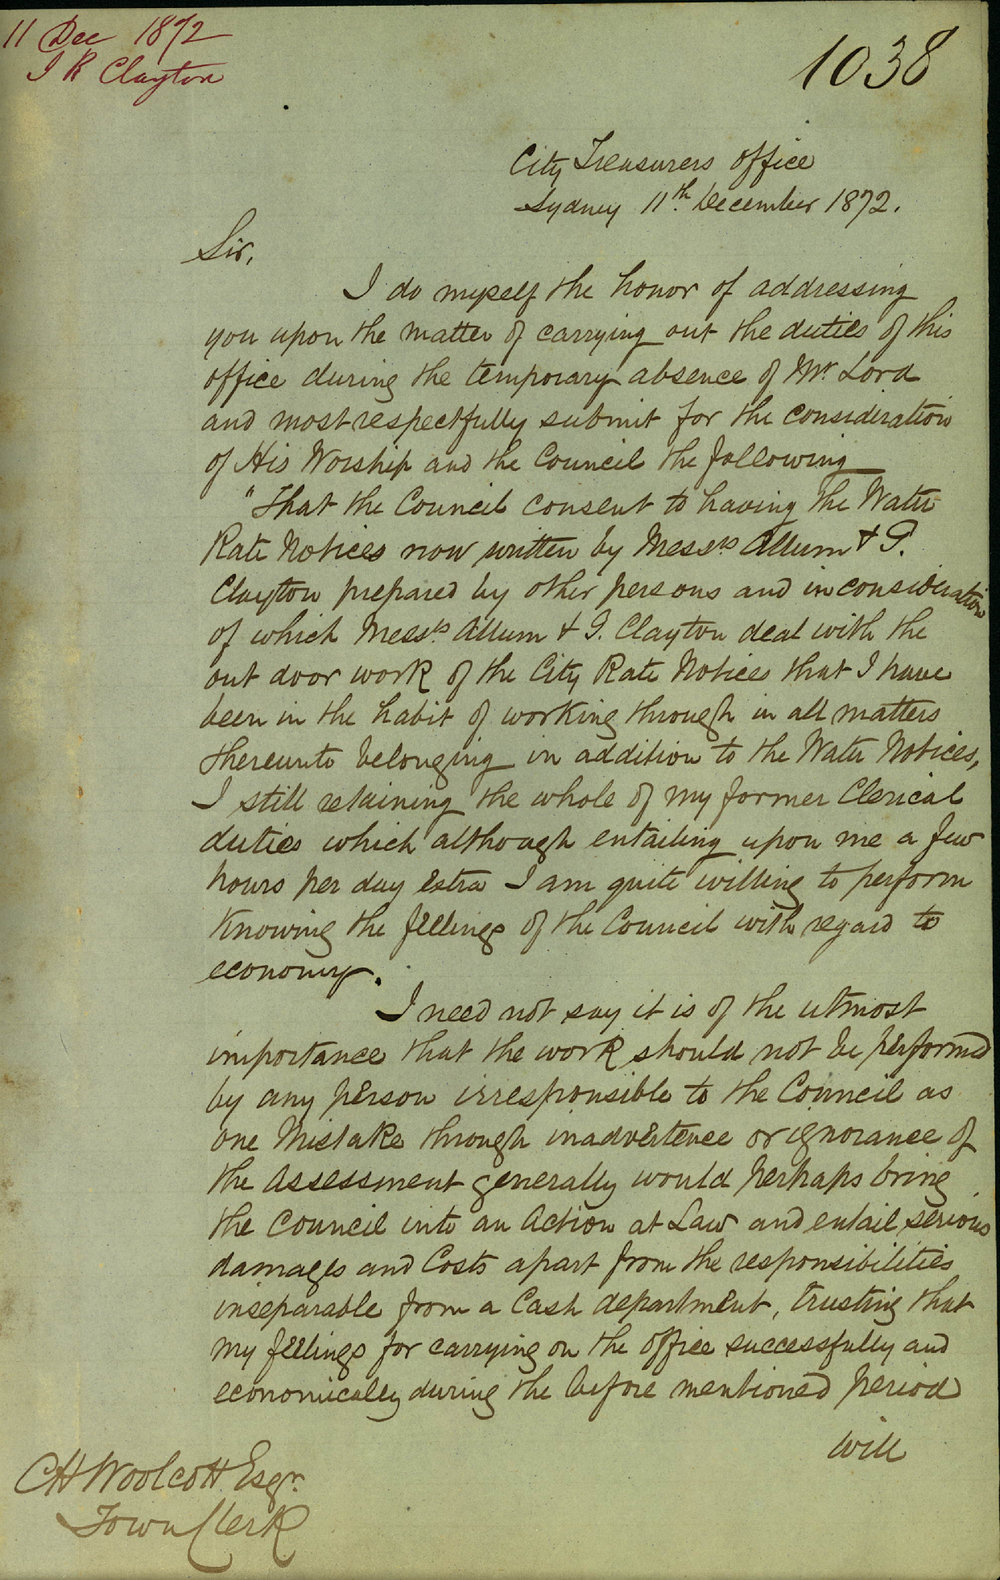 11 Dec 1872
J R Clayton
1038
City Treasurers office
Sydney 11th December 1872.
Sir,
I do myself the honor of addressing
you upon the matter of carrying out the duties of this
office during the temporary absence of Mr Lord
and most respectfully submit for the consideration
of His Worship and the Council the following
"That the Council consent to having the Water
Rate Notices now written by Messrs Allum & G.
Clayton prepared by other persons and in consideration
of which Messrs Allum & G. Clayton deal with the
out door work of the City Rate Notices that I have
been in the habit of working through in all matters
thereunto belonging in addition to the Water Notices,
I still retaining the whole of my former Clerical
duties which although entailing upon me a few
hours per day extra I am quite willing to perform
Knowing the feelings of the Council with regard to
economy.
I need not say it is of the utmost
importance that the work should not be performed
by any person irresponsible to the Council as
one Mistake through inadvertence or ignorance of
the Assessment generally would perhaps bring
the Council into an Action at Law and entail serious
damages and Costs apart from the responsibilities
inseparable from a Cash department, trusting that
my feelings for carrying on the office successfully and
economically during the before mentioned period
will
CH Woolcott Esqr.
Town Clerk